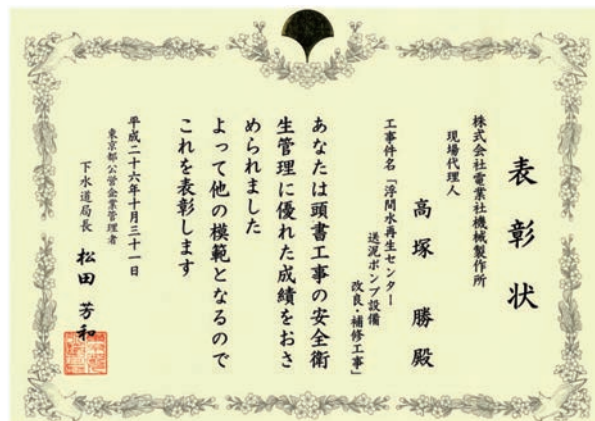 表彰状
株式会社電業社機械製作所
現場代理人
高塚 勝 殿
工事件名「浮間水再生センター
送泥ポンプ設備
改良・補修工事」
あなたは頭書工事の安全衛
生管理に優れた成績をおさ
められました
よって他の模範となるので
これを表彰します
平成二十六年十月三十一日
東京都公営企業管理者
下水道局長 松田 芳和